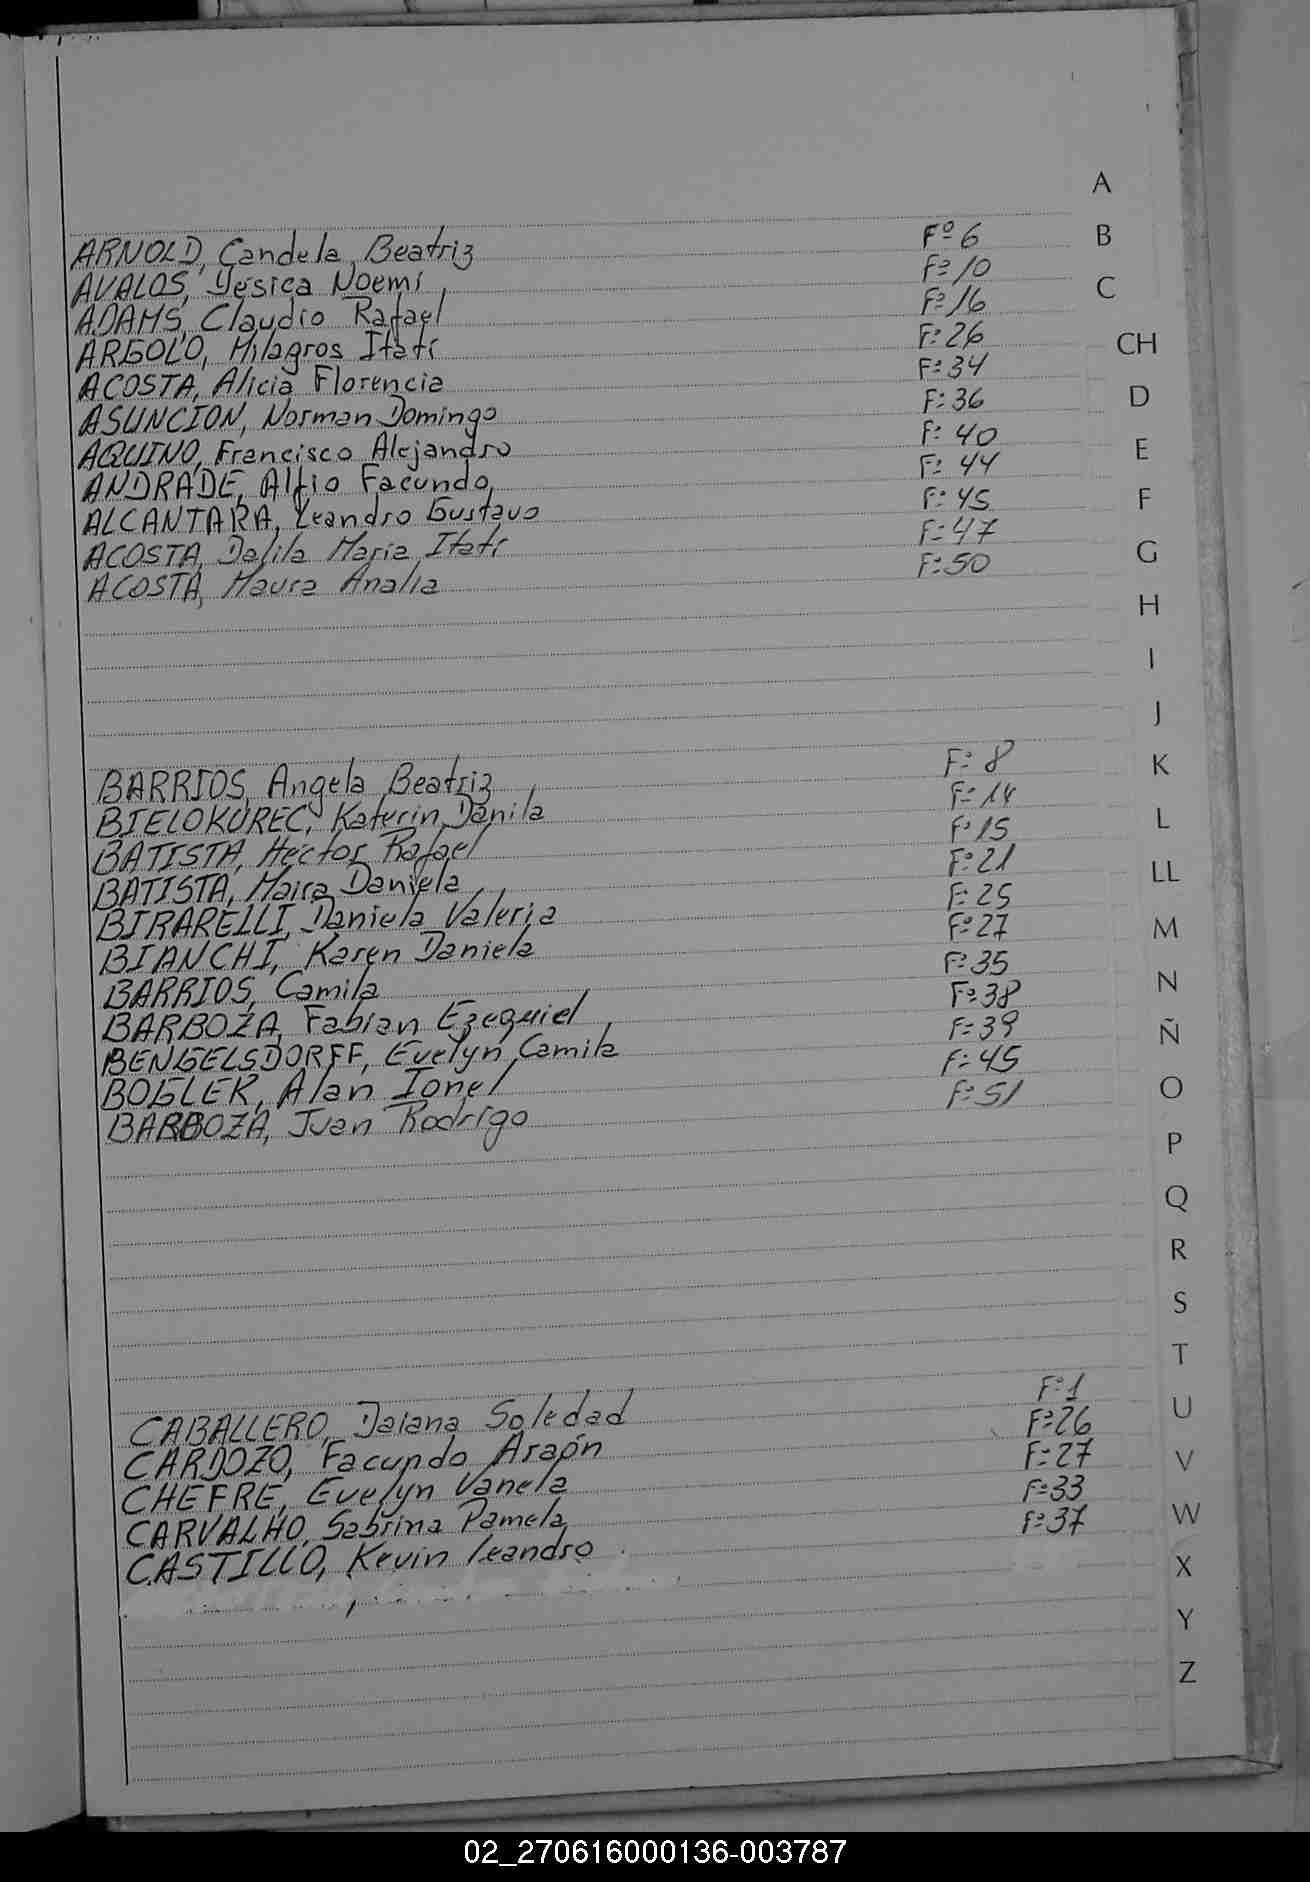 ARNOLD, Candela Beatriz Fº 6
AVALOS, Yesica Noemí Fº 10
ADAMS, Claudio Rafael Fº 16
ARGOLO, Milagros Itatí Fº 26
ACOSTA, Alicia Florencia Fº 34
ASUNCION, Norman Domingo Fº 36
AQUINO, Francisco Alejandro Fº 40
ANDRADE, Alfio Facundo Fº 44
ALCANTARA, Leandro Gustavo Fº 45
ACOSTA, Dalila Maria Itatí Fº 47
ACOSTA, Maura Analia Fº 50
BARRIOS, Angela Beatriz Fº 8
BIELOKUREC, Katerin Danila Fº 14
BATISTA, Hector Rafael Fº 15
BATISTA, Maira Daniela Fº 21
BIRARELLI, Daniela Valeria Fº 25
BIANCHI, Karen Daniela Fº 27
BARRIOS, Camila Fº 35
BARBOZA, Fabian Ezequiel Fº 38
BENGELSDORFF, Evelyn Camila Fº 39
BOGLER, Alan Ionel Fº 45
BARBOZA, Juan Rodrigo Fº 51
CABALLERO, Daiana Soledad Fº 1
CARDOZO, Facundo Araón Fº 26
CHEFRE, Evelyn Vanela Fº 27
CARVALHO, Sabrina Pamela Fº 33
CASTILLO, Kevin Leandro Fº 37
A
B
C
CH
D
E
F
G
H
I
J
K
L
LL
M
N
Ñ
O
P
Q
R
S
T
U
V
W
X
Y
Z
02_270616000136-003787